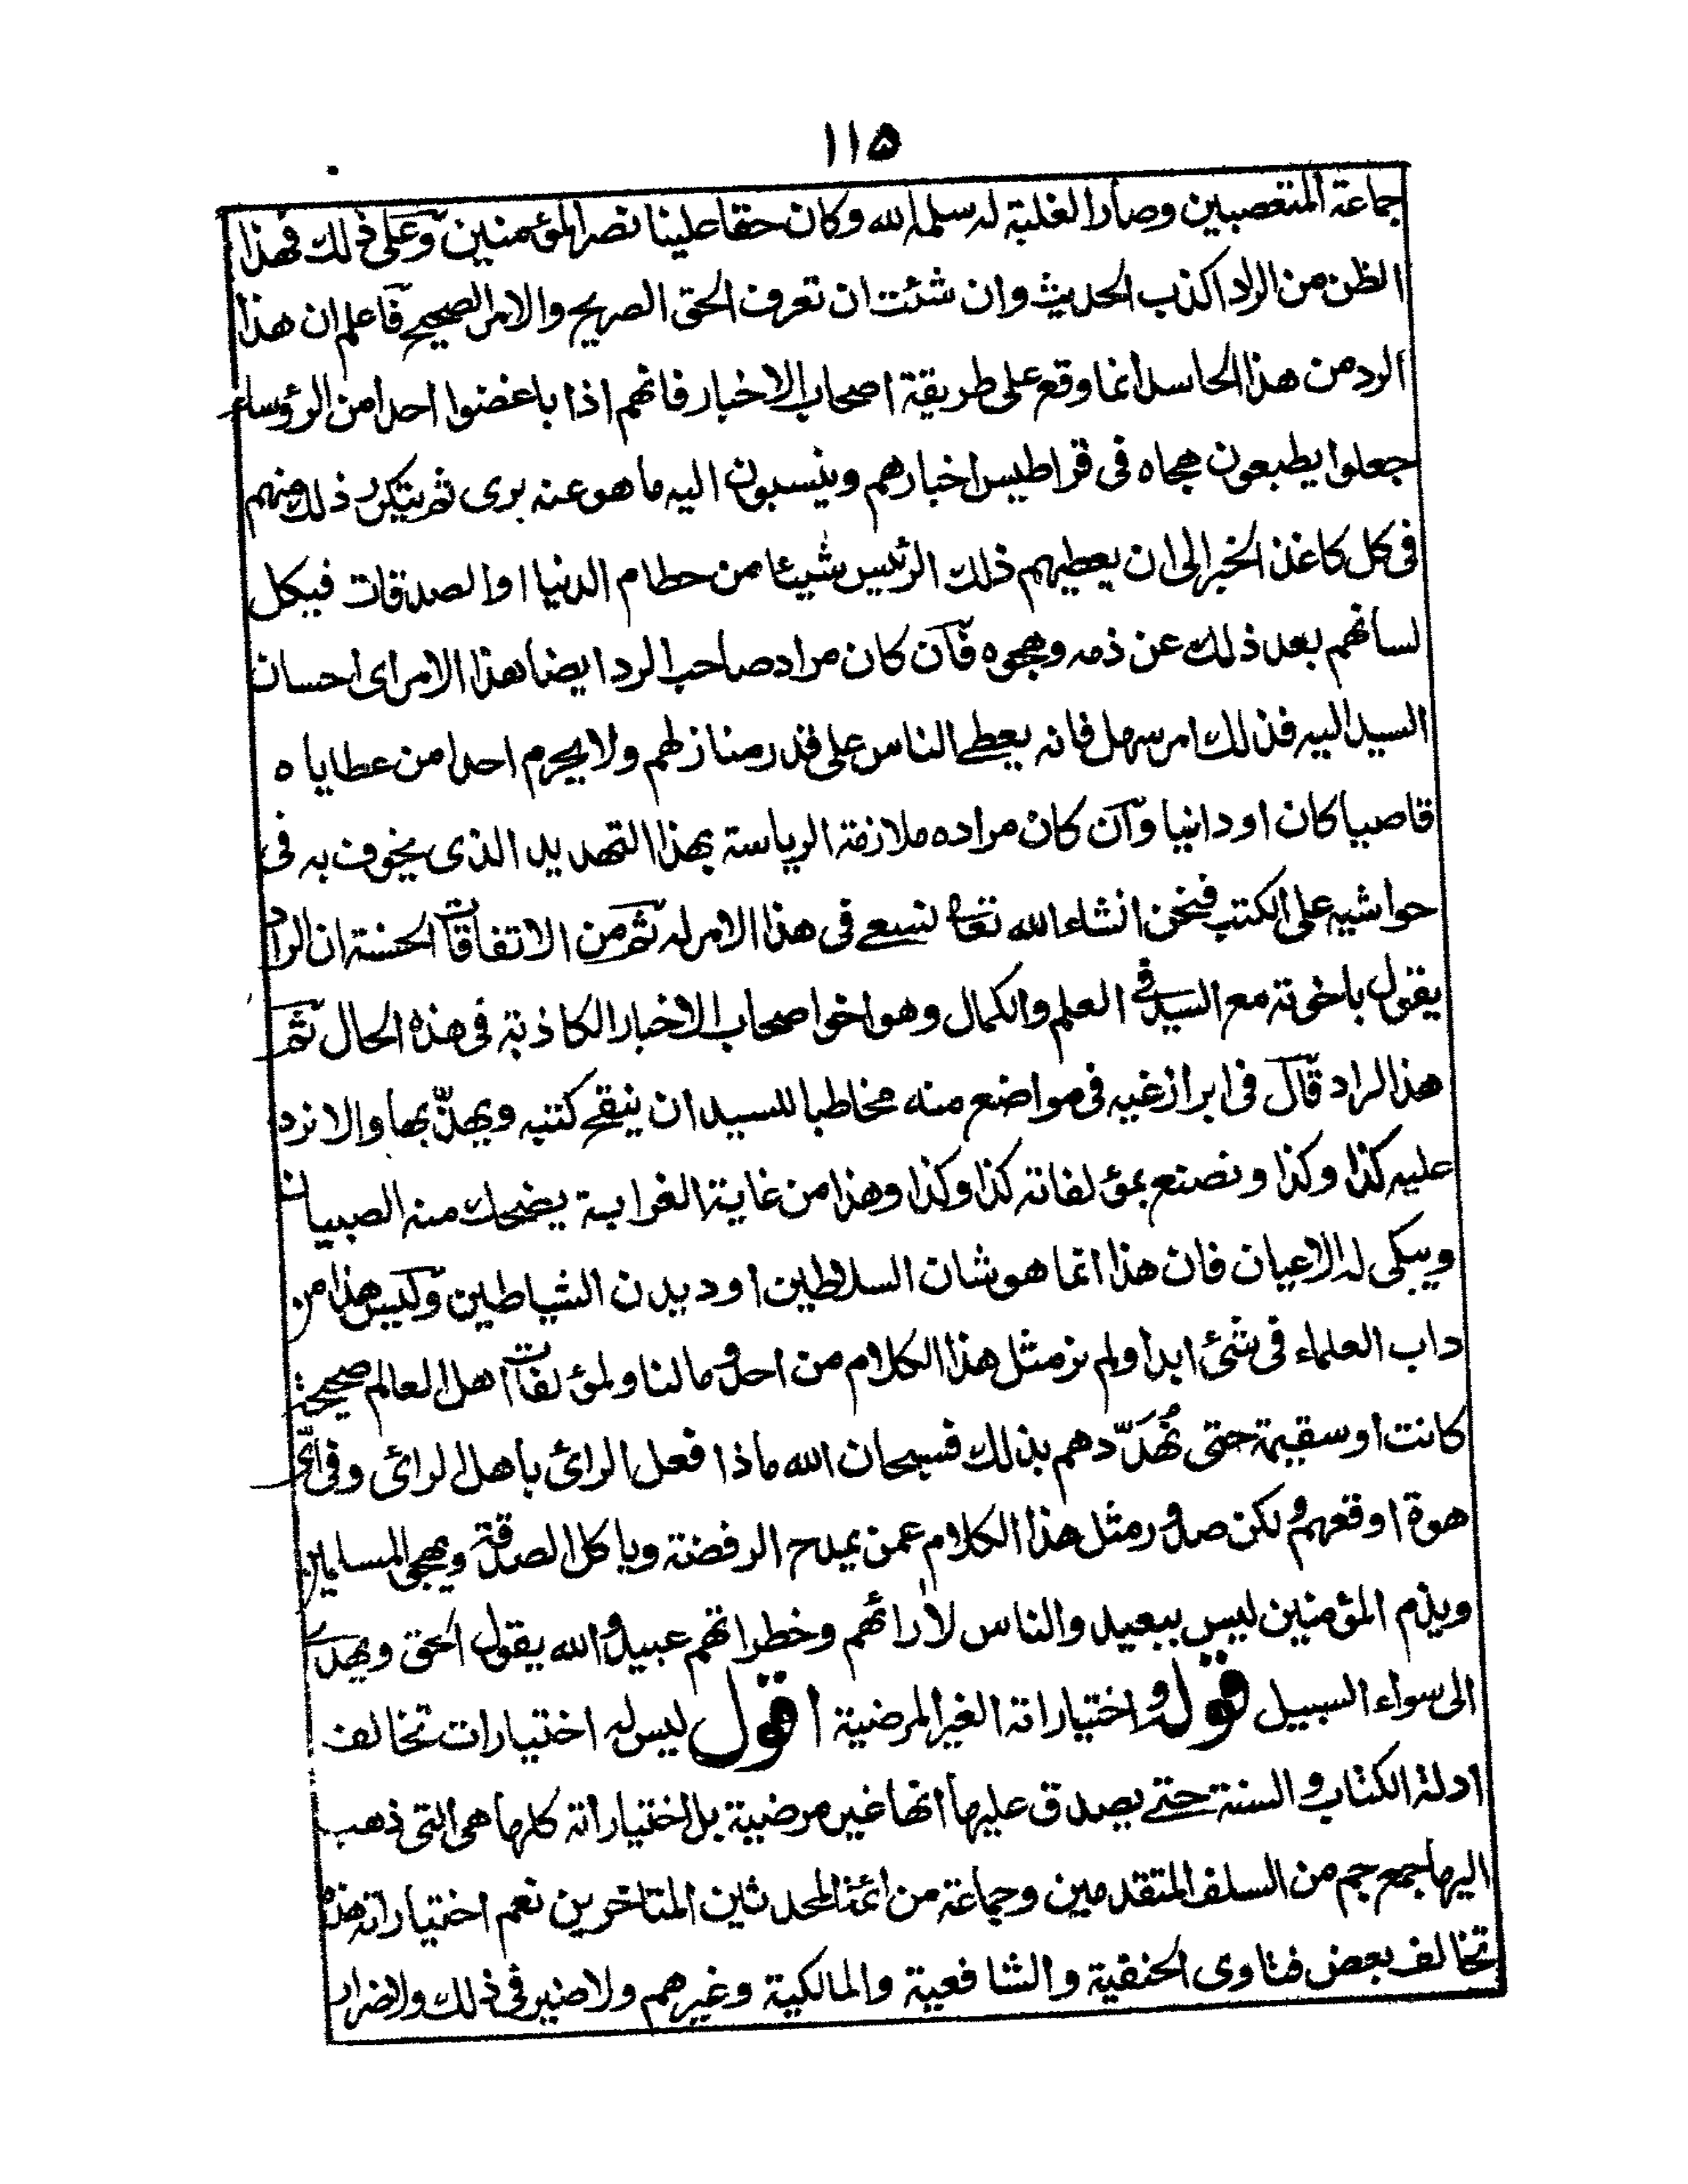 ١١٥
جماعة المتعصبين وصار الغلبة له سلمه الله وكان حقا علينا نصر المؤمنين وعلى ذلك فهذا
الظن من الراد اكذب الحديث وان شئت ان تعرف الحق الصريح والامر الصحيح فاعلم ان هذا
الرد من هذا الحاسد انما وقع على طريقة اصحاب الاخبار فانهم اذا باغضوا احدا من الرؤساء
جعلوا يطبعون هجاه فى قراطيس اخبارهم وينسبون اليه ما هو عنه برى ثم يتكرر ذلك منهم
فى كل كاغذ الخبر الى ان يعطيهم ذلك الرئيس شيئا من حطام الدنيا او الصدقات فيكل
لسانهم بعد ذلك عن ذمه وهجوه فان كان مراد صاحب الرد ايضا هذا الامر اى احسان
السيد اليه فذلك امر سهل فانه يعطى الناس على قدر منازلهم ولا يحرم احدا من عطاياه
قاصيا كان او دانيا وان كان مراده ملازمة الرياسة بهذا التهديد الذى يخوف به فى
حواشيه على الكتب فنحن انشاء الله تعا لنسعے فى هذا الامر له ثم من الاتفاقات الحسنة ان الراد
يقول باخوته مع السيد فى العلم والكمال وهو اخو اصحاب الاخبار الكاذبة فى هذه الحال ثم
هذا الراد قال فى ابراز غيه فى مواضع منه مخاطبا للسيد ان ينقح كتبه ويهذّبها والا نرد
عليه كذا وكذا ونصنع بمؤلفاته كذا وكذا وهذا من غاية الغرابة يضحك منه الصبيان
ويبكى له الاعيان فان هذا انما هو شان السلاطين او ديدن الشياطين وليس هذا من
داب العلماء فى شئ ابدا ولم نر مثل هذا الكلام من احد وما لنا ولمؤلفات اهل العالم صحيحة
كانت او سقيمة حتى نُهَدّدهم بذلك فسبحان الله ماذا فعل الرائ باهل الرائ وفى اىّ
هوة اوقعهم ولكن صدور مثل هذا الكلام عمن يمدح الرفضة وياكل الصدقة ويهجى المسلمين
ويذم المؤمنين ليس ببعيد والناس لأرائهم وخطراتهم عبيد والله يقول الحق ويهدى
الى سواء السبيل قوله واختياراته الغير المرضية اقول ليس له اختيارات تخالف
ادلة الكتاب والسنة حتے يصدق عليها انها غير مرضية بل اختياراته كلها هى التى ذهب
اليها جمع جم من السلف المتقدمين وجماعة من ائمة المحدثين المتاخرين نعم اختياراته هذه
تخالف بعض فتاوى الحنفية والشافعية والمالكية وغيرهم ولا ضير فى ذلك ولا ضرار